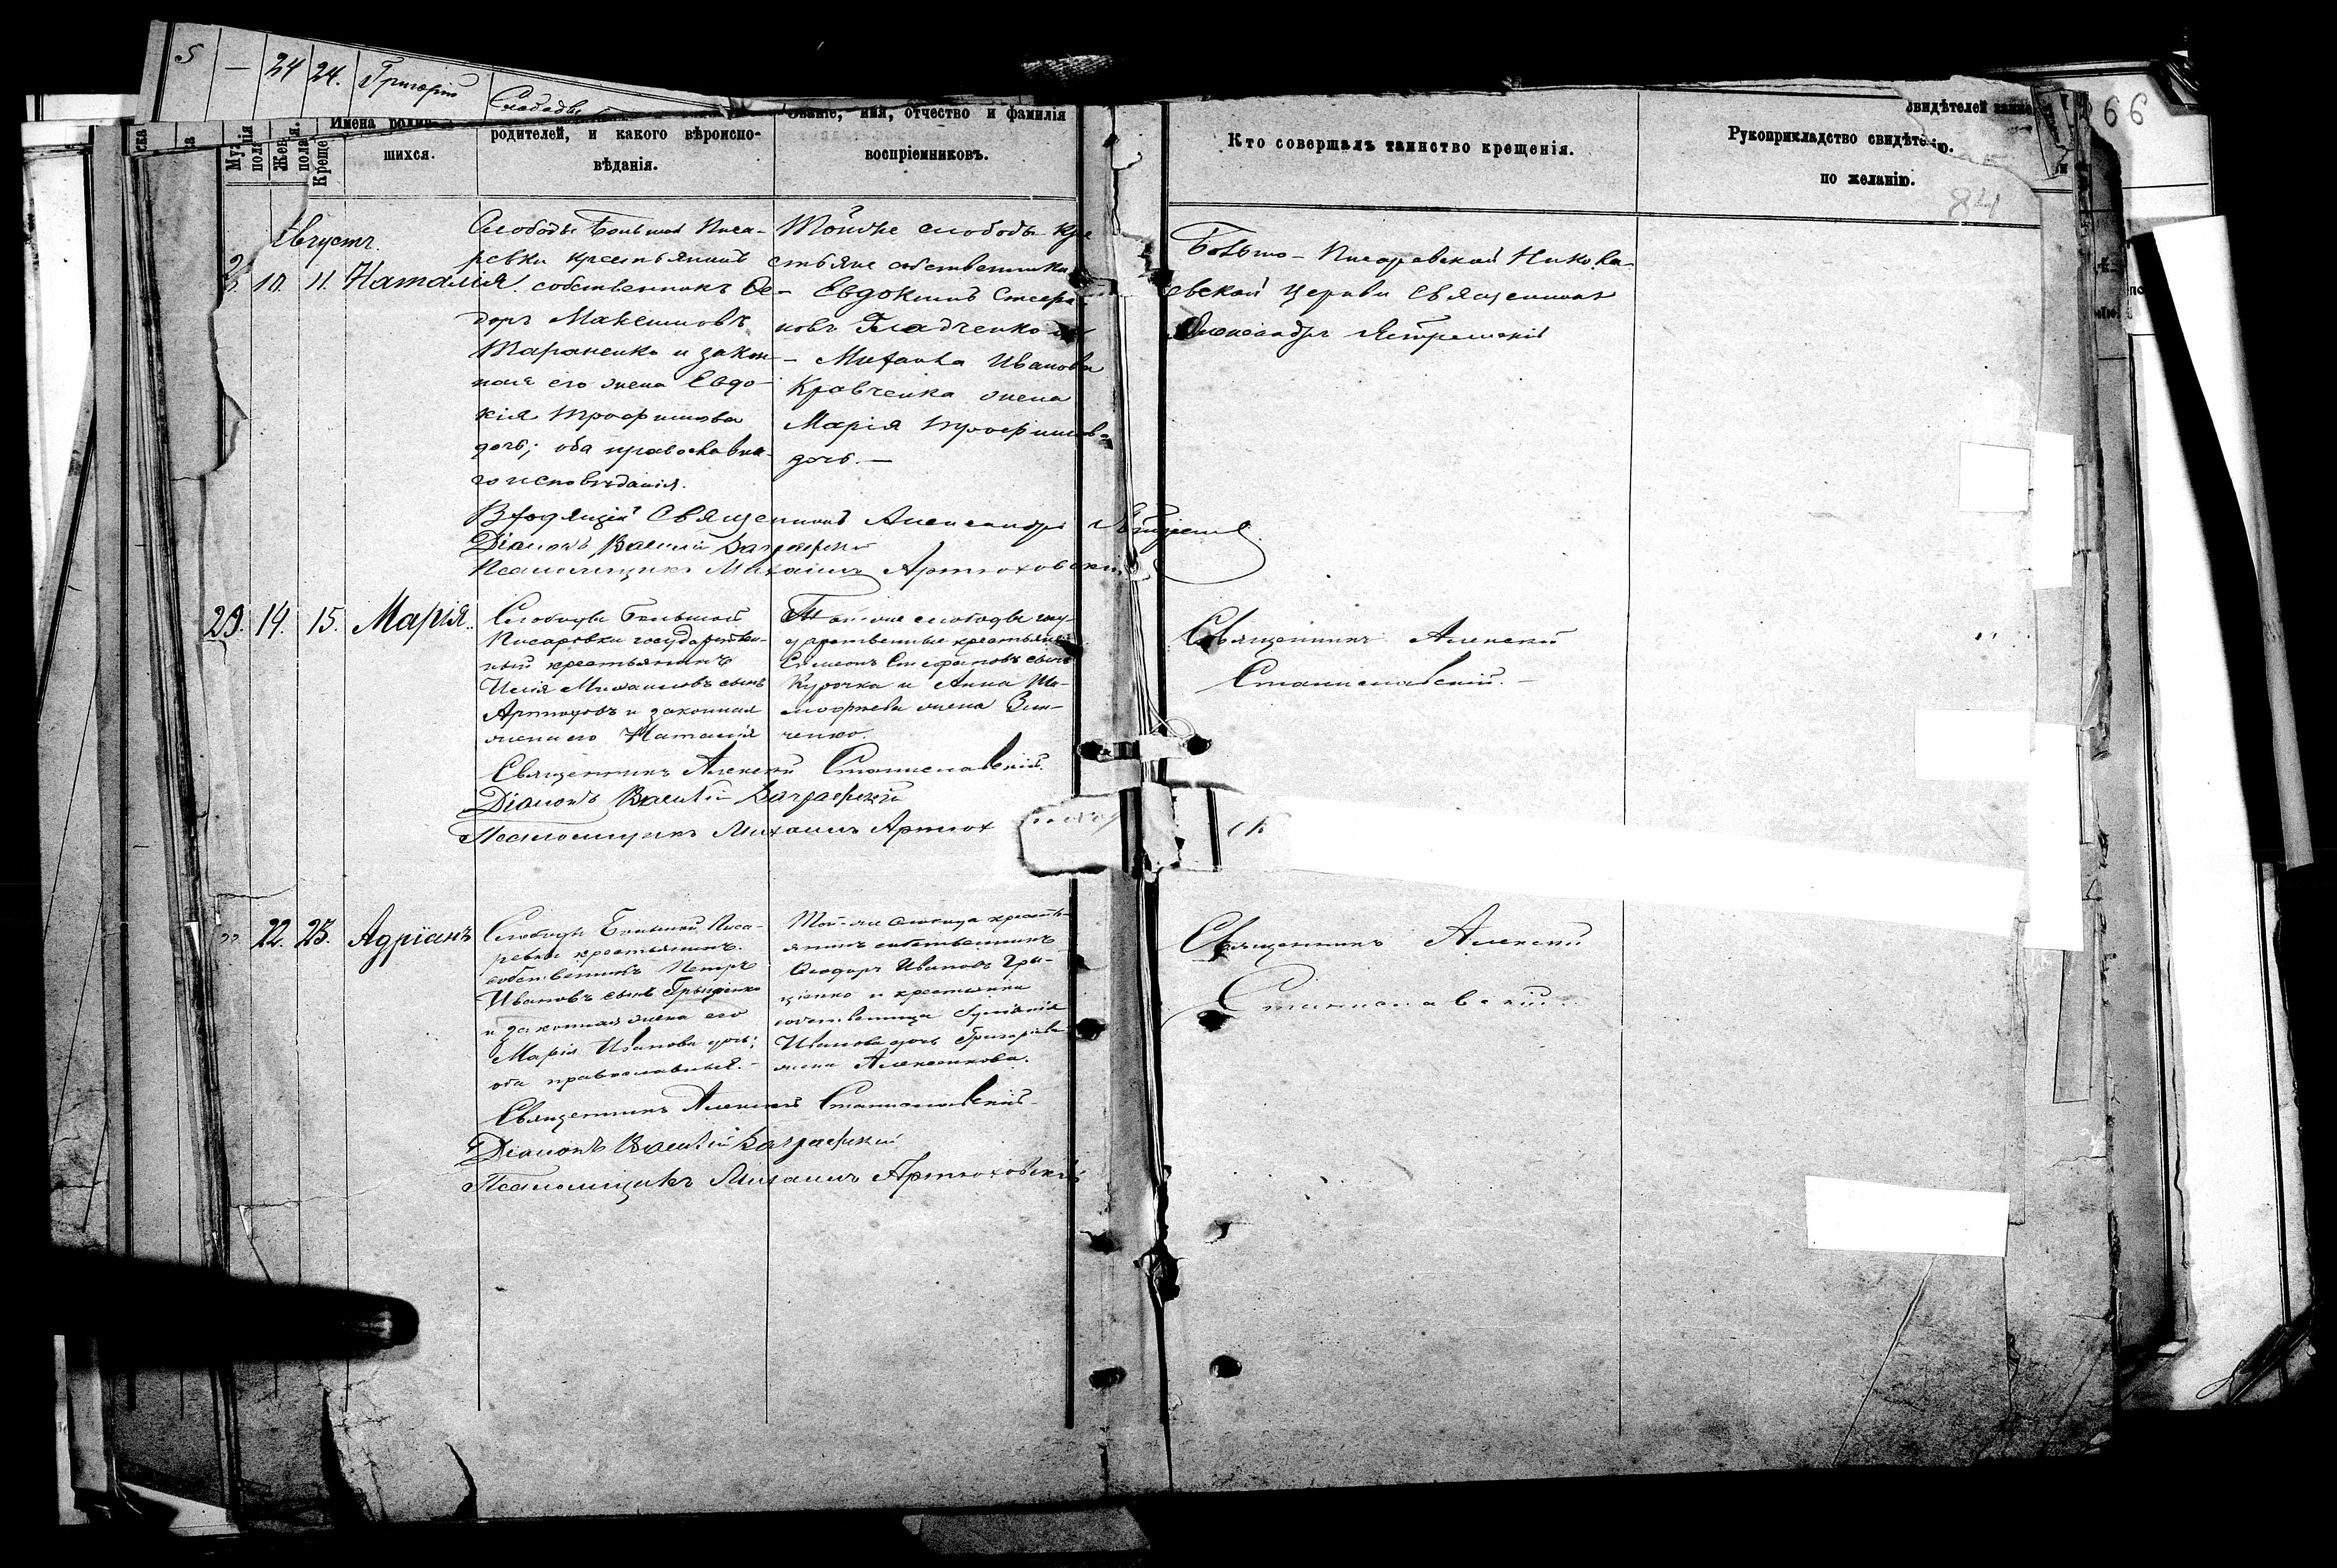 5 — 24 24. Григорій
Слободы
66
84
Имена родив-
шихся.
родителей, и какого вѣроиспо-
вѣданія.
Званіе, имя, отчество и фамилія
воспріемниковъ.
Кто совершалъ таинство крещенія.
Рукоприкладство свидѣте
по желанію.
Августъ.
10. 11. Наталія
Слободы Большой Писа-
ревки крестьянинъ
собственникъ Ѳе-
доръ Максимовъ
Тараненко и закон-
ная его жена Евдо-
кія Трофимова
дочь; оба православна-
го исповѣданія.
Тойже слободы кре
стьяне собственники
Евдокимъ Стефа
новъ Гладченко и
Михаила Иванова
Кравченка жена
Марія Трофимова
дочь. —
Больше-Писаревской Никола-
евской церкви Священникъ
Александръ
Входящій Священникъ Александръ
Діаконъ Василій
Псаломщикъ Михаилъ Артюховскій
29. 14. 15. Марія.
Слободы Большой
Писаровки государствен-
ный крестьянинъ
Илія Михаиловъ сынъ
Артюховъ и законная
жена его Наталія
Той же слободы госу-
дарственные крестьяне
Симеонъ Стефановъ сынъ
Курочка и Анна Ти-
мофеева жена Зин-
ченко.
Священникъ Алексій
Станиславскій. —
Священникъ Алексій Станиславскій.
Діаконъ Василій
Псаломщикъ Михаилъ Артюх
22. 23. Адріанъ
Слободы Большой Писа-
ревки крестьянинъ
собственникъ Петръ
Ивановъ сынъ Грищенко
и законная жена его
Марія Иванова дочь;
оба православные. —
Той-же слободы кресть-
янинъ собственникъ
Ѳеодоръ Ивановъ Гри-
щенко и крестьянка
собственница
Иванова дочь Григорьева
жена Алексенкова.
Священникъ Алексій
Станиславскій.
Священникъ Алексій Станиславскій
Діаконъ Василій
Псаломщикъ Михаилъ Артюховскій